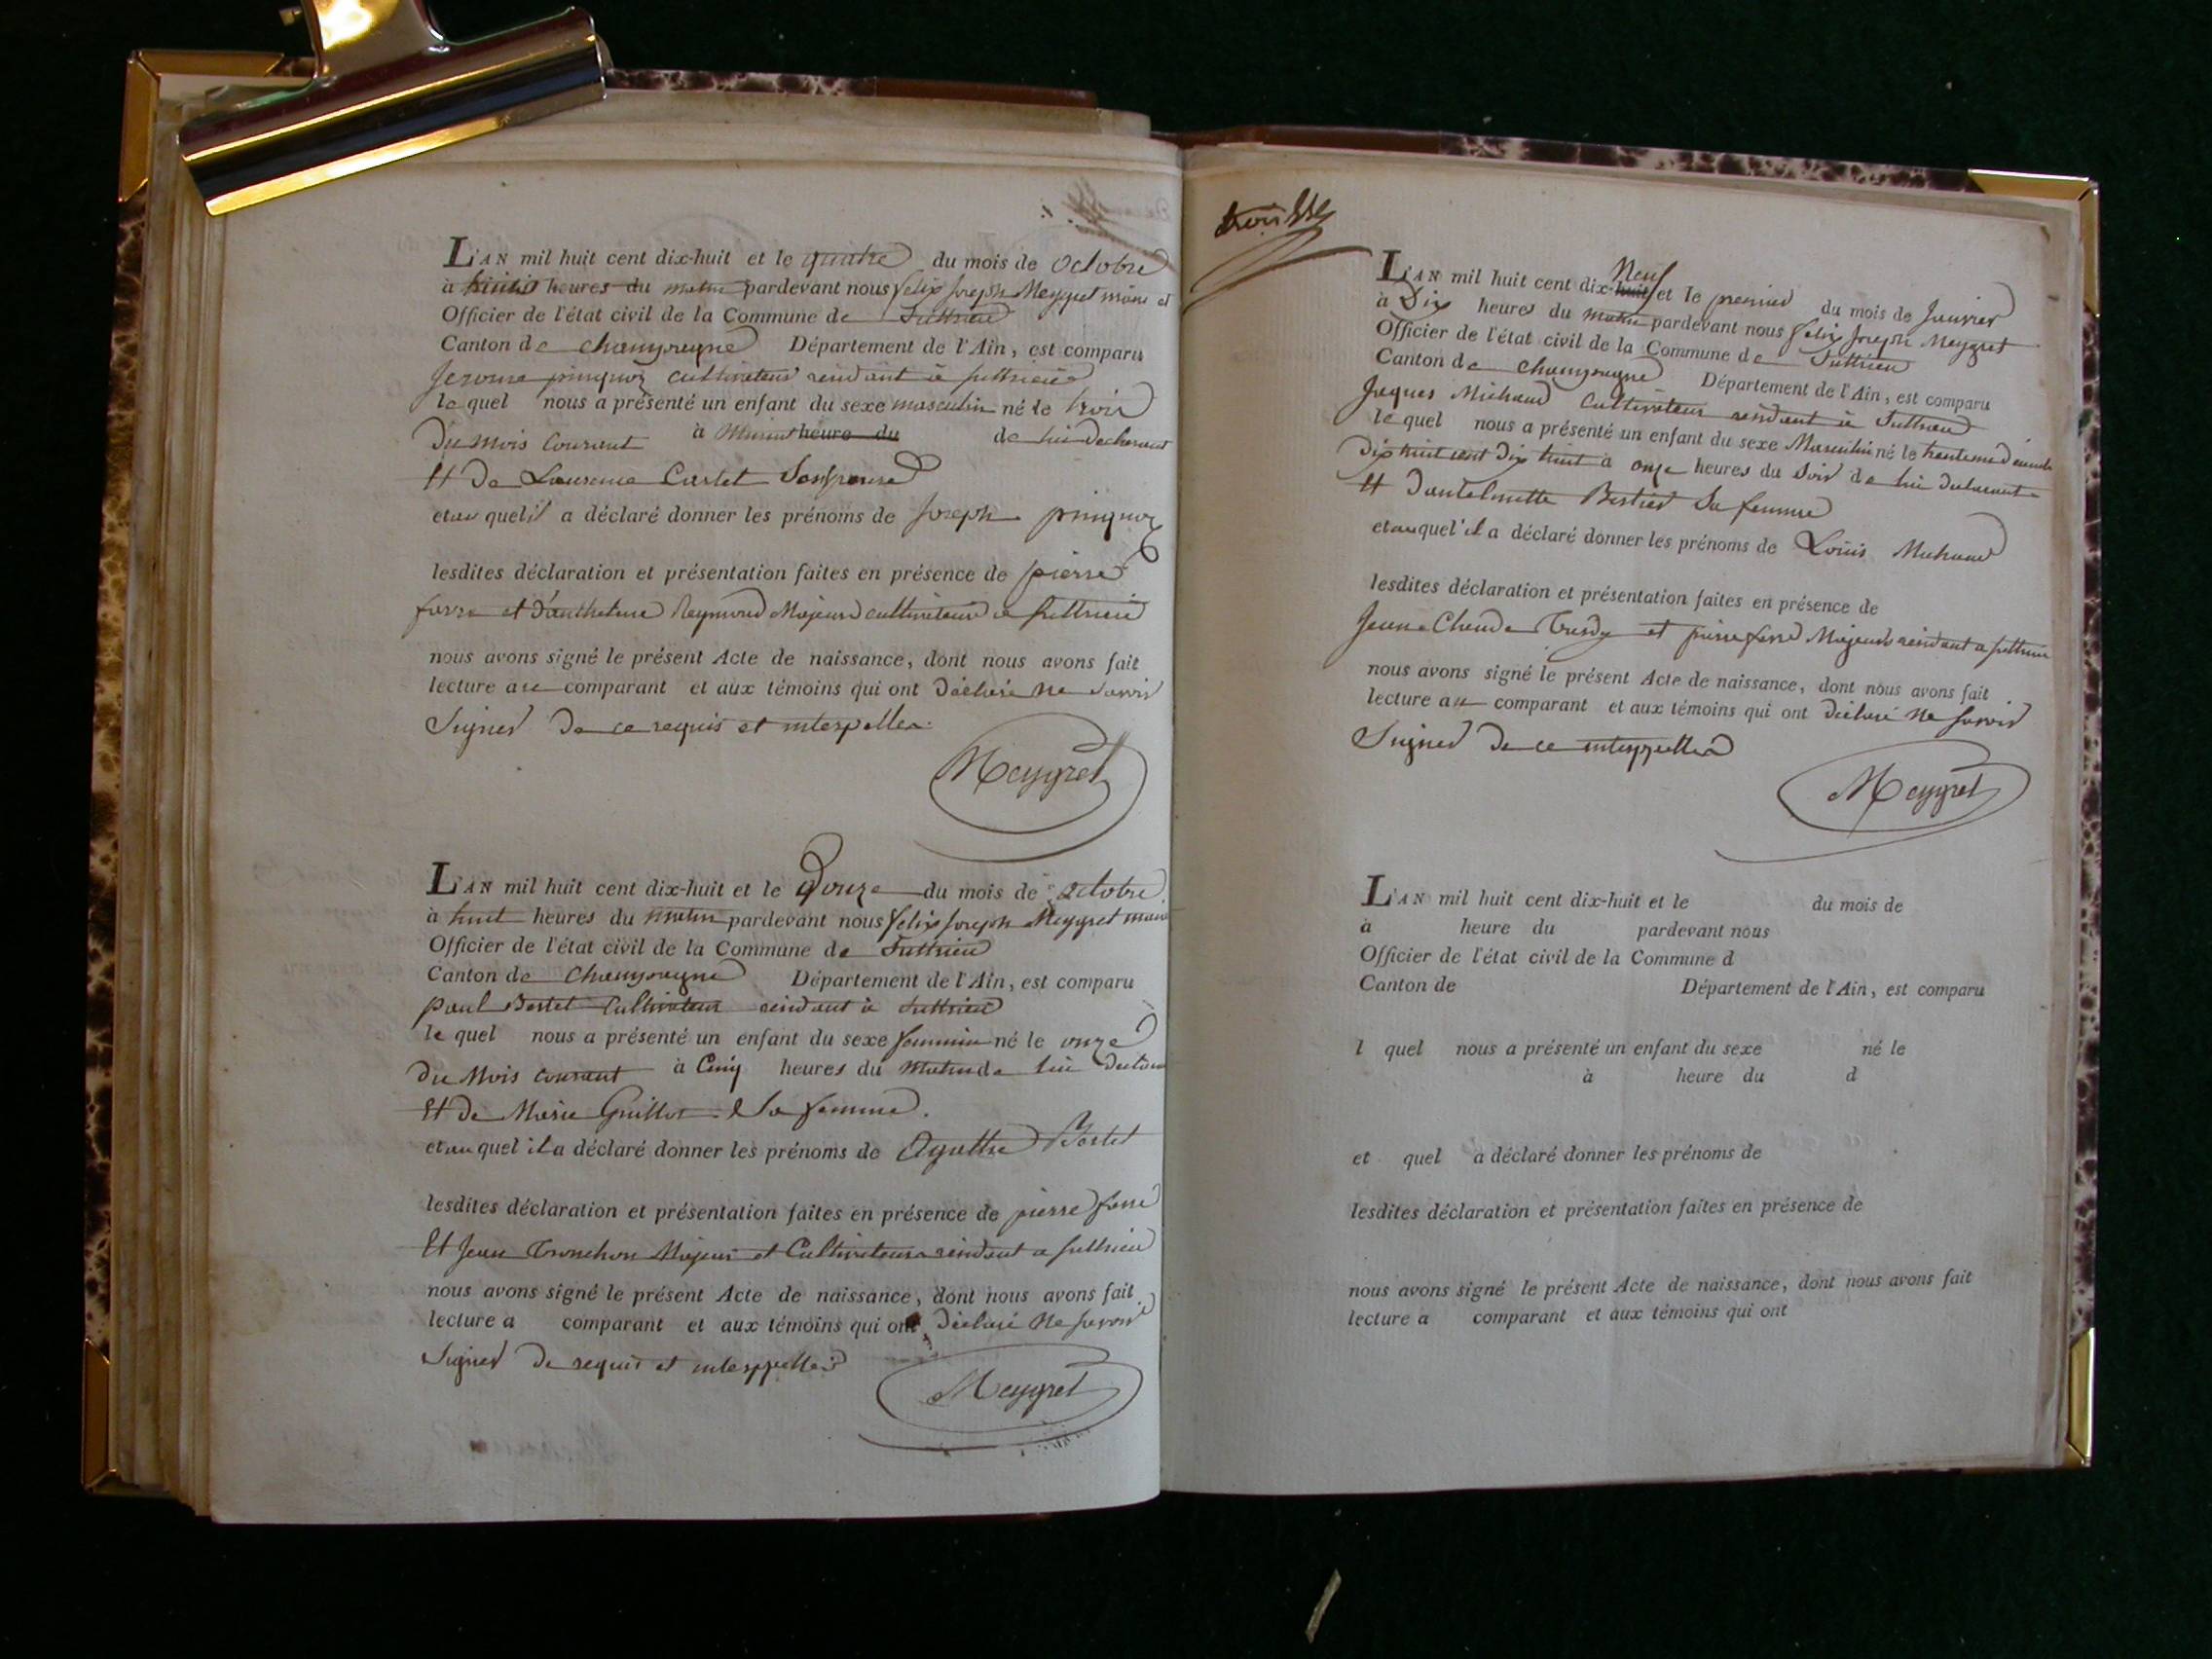 L'AN mil huit cent dix-huit et le quatre du mois de octobre
à heures du matin pardevant nous felix joseph Meygret maire et
Officier de l'état civil de la Commune de Suttrieu
Canton de champagne Département de l'Ain, est comparu
Jerome pinguoz cultivateur à suttrieu
le quel nous a présenté un enfant du sexe masculin né le trois
du mois courant à heure du de lui declarant
Et de Laurence Carlet Son
et au quel il a déclaré donner les prénoms de joseph
lesdites déclaration et présentation faites en présence de pierre
et Reymond Majeurs cultivateurs a suttrieu
nous avons signé le présent Acte de naissance, dont nous avons fait
lecture au comparant et aux témoins qui ont déclaré ne savoir
Signer de ce requis et interpellés
Meygret
L'AN mil huit cent dix-huit et le Douze du mois de octobre
à huit heures du matin pardevant nous felix joseph Meygret maire
Officier de l'état civil de la Commune de Suttrieu
Canton de champagne Département de l'Ain, est comparu
paul Bertet Cultivateur à suttrieu
le quel nous a présenté un enfant du sexe feminin né le onze
du Mois courant à Cinq heures du Matin de lui
Et de Marie Guillot Sa femme.
et au quel il a déclaré donner les prénoms de Agathe Bertet
lesdites déclaration et présentation faites en présence de pierre
Et Jean Tronchon Majeurs et Cultivateurs a suttrieu
nous avons signé le présent Acte de naissance, dont nous avons fait
lecture a comparant et aux témoins qui ont déclaré ne savoir
Signer de requis et interppellés
Meygret
trois
L'AN mil huit cent dix-huit Neuf et le premier du mois de Janvier
à Dix heures du matin pardevant nous felix Joseph Meygret
Officier de l'état civil de la Commune de Suttrieu
Canton de champagne Département de l'Ain, est comparu
Jaques Michaud Cultivateur à Suttrieu
le quel nous a présenté un enfant du sexe Masculin né le
Dix huit cent Dix huit à onze heures du Soir de lui declarant
Et Bertier Sa femme
et au quel il a déclaré donner les prénoms de Louis Michaud
lesdites déclaration et présentation faites en présence de
et pierre Majeurs a suttrieu
nous avons signé le présent Acte de naissance, dont nous avons fait
lecture au comparant et aux témoins qui ont déclaré ne savoir
Signer de ce interppellés
Meygret
L'AN mil huit cent dix-huit et le du mois de
à heure du pardevant nous
Officier de l'état civil de la Commune d
Canton de Département de l'Ain, est comparu
l quel nous a présenté un enfant du sexe né le
à heure du d
et quel a déclaré donner les prénoms de
lesdites déclaration et présentation faites en présence de
nous avons signé le présent Acte de naissance, dont nous avons fait
lecture a comparant et aux témoins qui ont